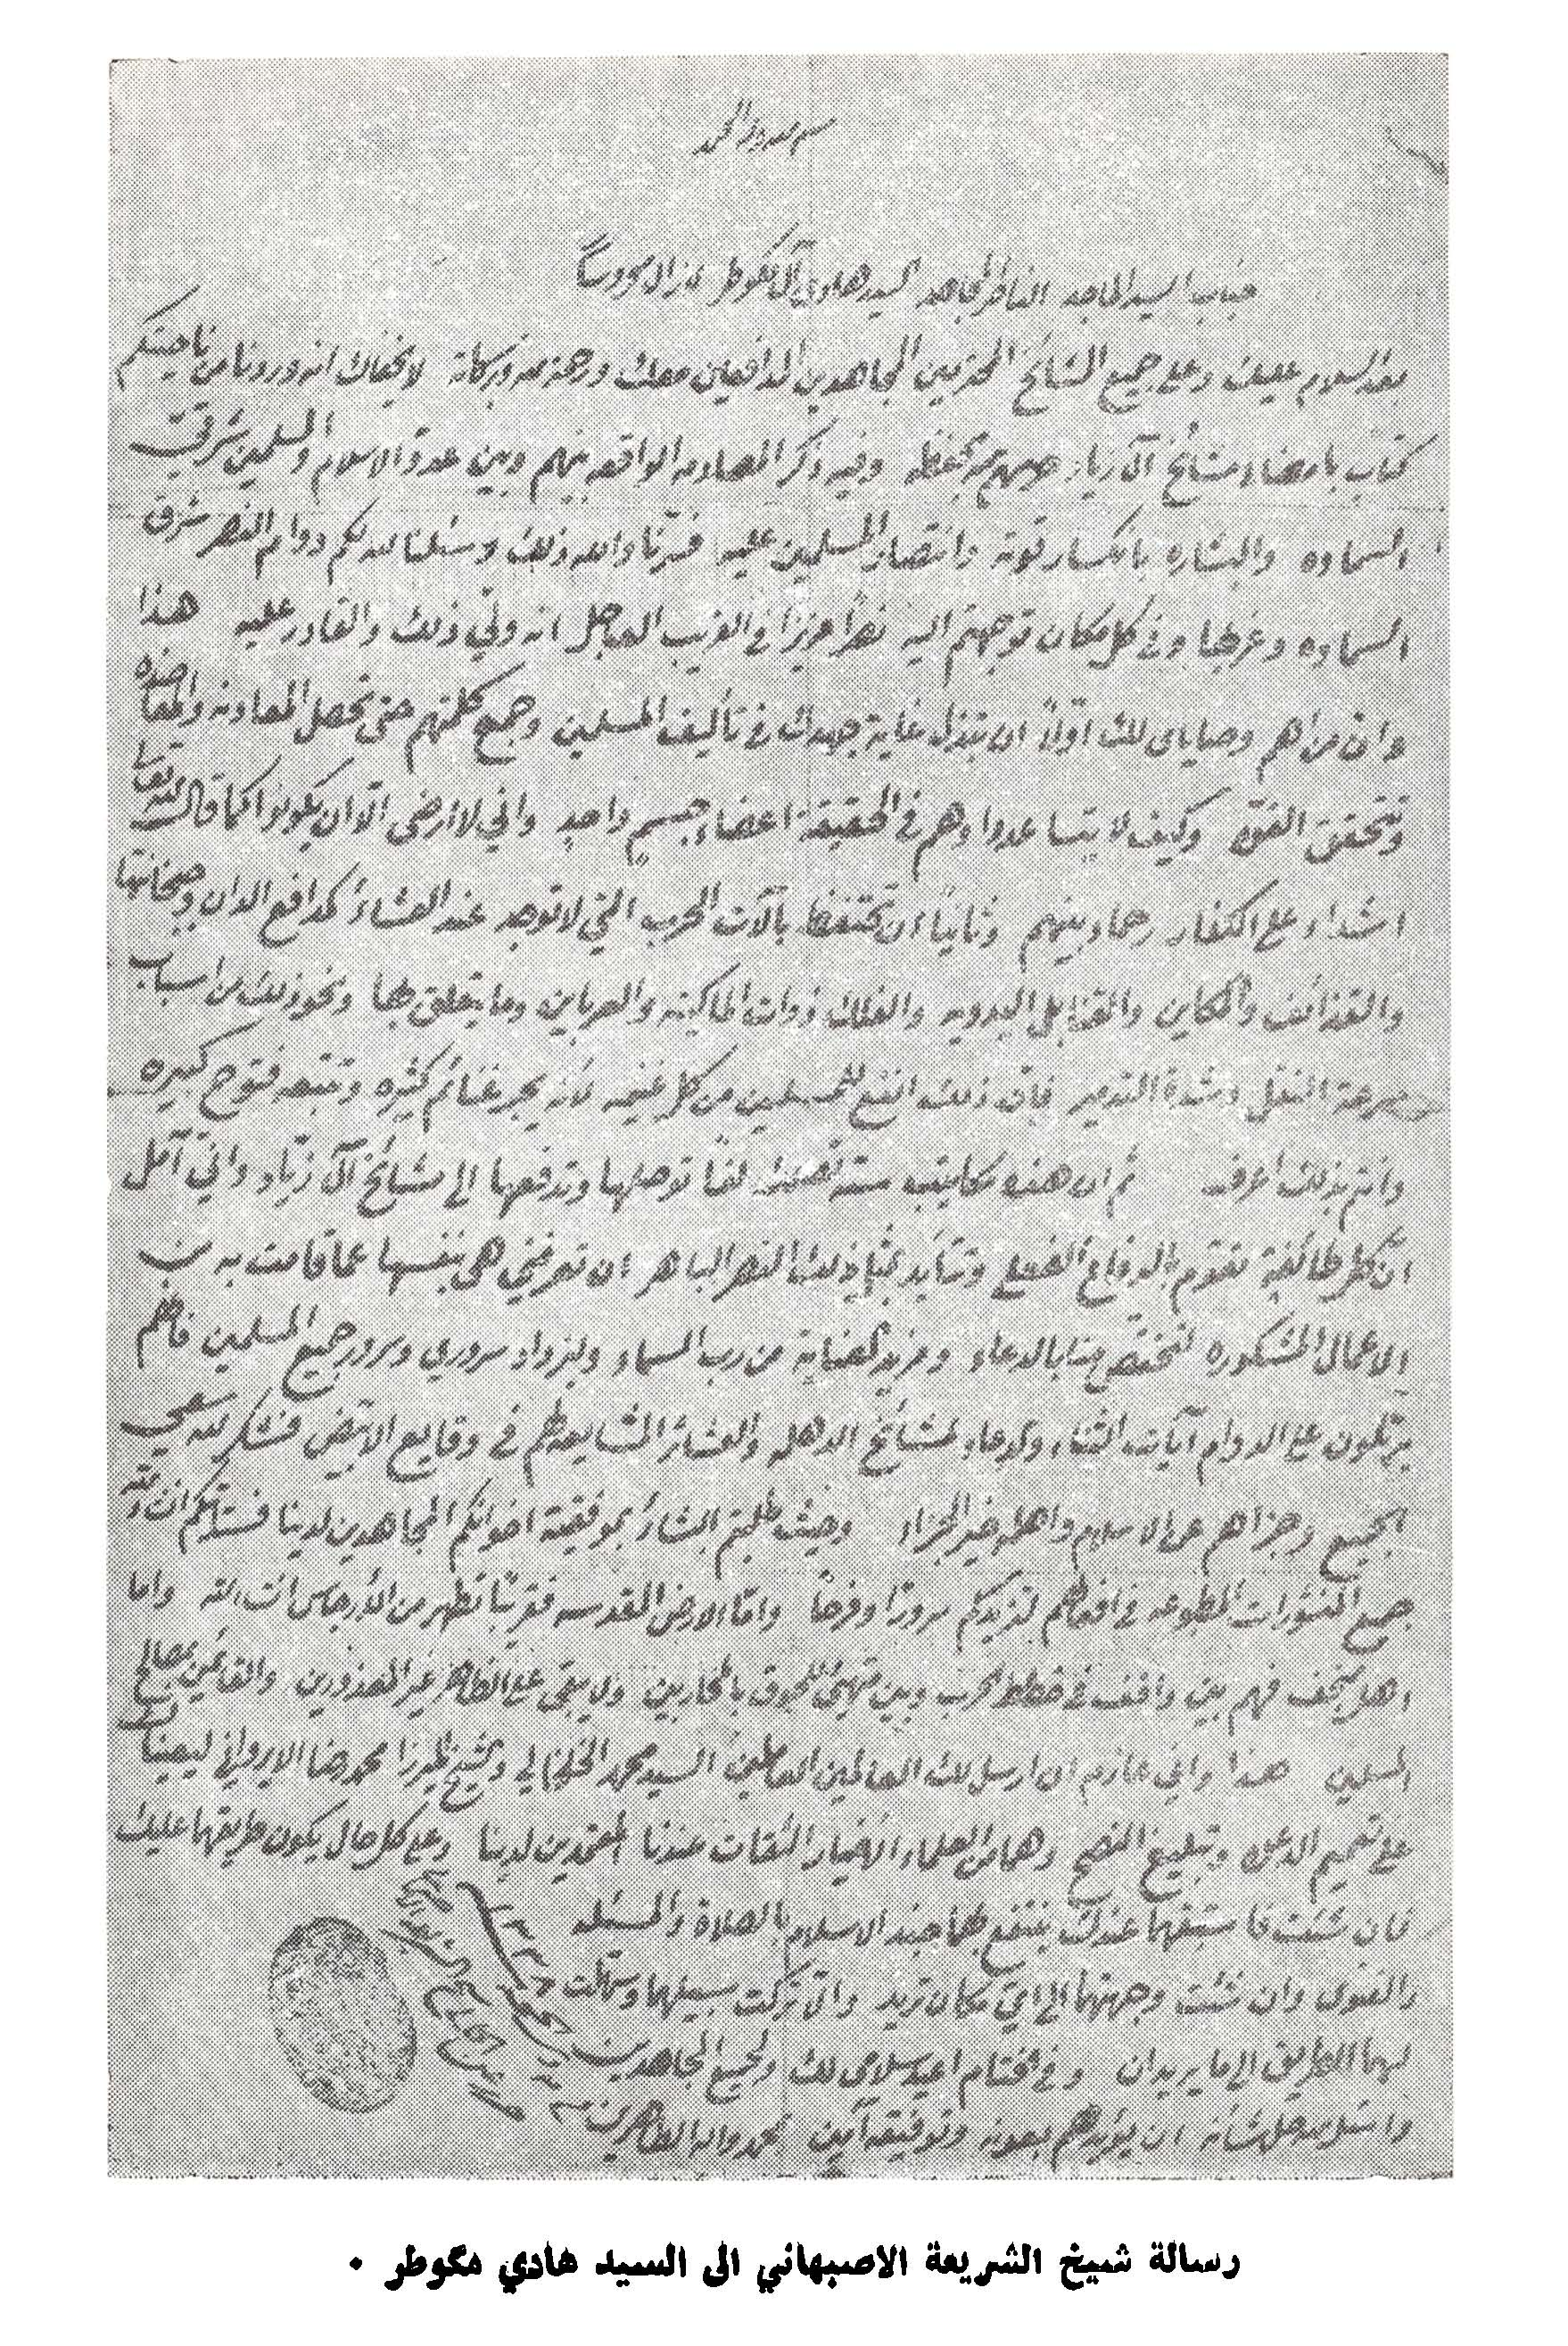 بسم الله وله الحمد
جناب السيد الماجد الفاضل المجاهد السيد هادي آل مگوطر لا زال محروساً
بعد السلام عليك وعلى جميع المشائخ المحترمين المجاهدين المدافعين معك ورحمة الله وبركاته لا يخفاك انه وردنا من ناحيتكم
كتاب بامضاء مشائخ آل زياد حرسهم الله بحفظه وفيه ذكر المصادمه الواقعه بينهم وبين عدو الاسلام والمسلمين شرقي
السماوه والبشاره بانكسار قوته وانتصار المسلمين عليه فسرنا والله ذلك وسئلنا الله لكم دوام النصر شرق
السماوه وغربها وفي كل مكان توجهتم اليه نصراً عزيزاً في القريب العاجل انه ولي ذلك والقادر عليه هذا
وان من اهم وصاياي لك اولاً ان تبذل غاية جهدك في تأليف المسلمين وجمع كلمتهم حتى تحصل المعاونه والمعاضده
وتتحقق القوه وكيف لا يتساعدوا وهم في الحقيقة اعضاء جسم واحد واني لا ارضى الا ان يكونوا كما قال الله تعالى
اشداء على الكفار رحماء بينهم وثانياً ان تحتفظ بآلات الحرب التي لا توجد عند العشائر كمدافع الدان وجبخانتها
والقذائف والمكاين والقنابل اليدويه والفلك ذوات الماكينه والعرباين وما يتعلق بها ونحو ذلك من اسباب
سرعة النقل وشدة التدمير فان ذلك انفع للمسلمين من كل غنيمه لأنه يجر غنائم كثيره وتتبعه فتوح كبيره
وانتم بذلك اعرف ثم ان هذه مكاتيب ستة لفاً توصلها وتدفعها الى مشائخ آل زياد واني آمل
ان كل طائفة تقوم بالدفاع الفعلي وتتأيد بمثل ذلك النصر الباهر ان تعرفني هي بنفسها عما قامت به من
الاعمال المشكوره لتختص منا بالدعاء ومزيد العناية من رب السماء وليزداد سروري وسرور جميع المسلمين فانهم
يرتلون على الدوام آيات الثناء والدعاء لمشائخ والعشائر المشايعه لهم في وقايع فشكر الله سعي
الجميع وجزاهم عن الاسلام واهله خير الجزاء وحيث طلبتم البشائر بموفقية اخوانكم المجاهدين لدينا فستأتيكم انشاء الله
جميع المنشورات المطبوعه في افعالهم لتزيدكم سروراً وفرحاً واما الارض المقدسه فقريباً تطهر من الأرجاس انشاء الله واما
اهل النجف فهم بين واقف في خطط الحرب وبين متهيئ للحوق بالمحاربين ولا يبقى على الظاهر غير المعذورين والقائمين بمصالح
المسلمين هذا واني عازم ان ارسل لك العالمين العاملين السيد محمد الخلخالي والشيخ الميرزا محمد رضا الايرواني ليعيناك
على تعميم الدعوه وتبليغ النصح وهما من العلماء الأخيار الثقات عندنا المعتمدين لدينا وعلى كل حال يكون طريقهما عليك
فان شئت فاستبقهما عندك ينتفع بهما جند الاسلام بالصلاة والمسئله
والفتوى وان شئت وجهتهما الى اي مكان تريد والا تركت سبيلهما وسهلت
لهما الطريق الى ما يريدان وفي الختام اعيد سلامي لك ولجميع المجاهدين
واسئل الله جل شأنه ان يؤيدهم بعونه وتوفيقه آمين بمحمد وآله الطاهرين
رسالة شيخ الشريعة الاصبهاني الى السيد هادي مگوطر .